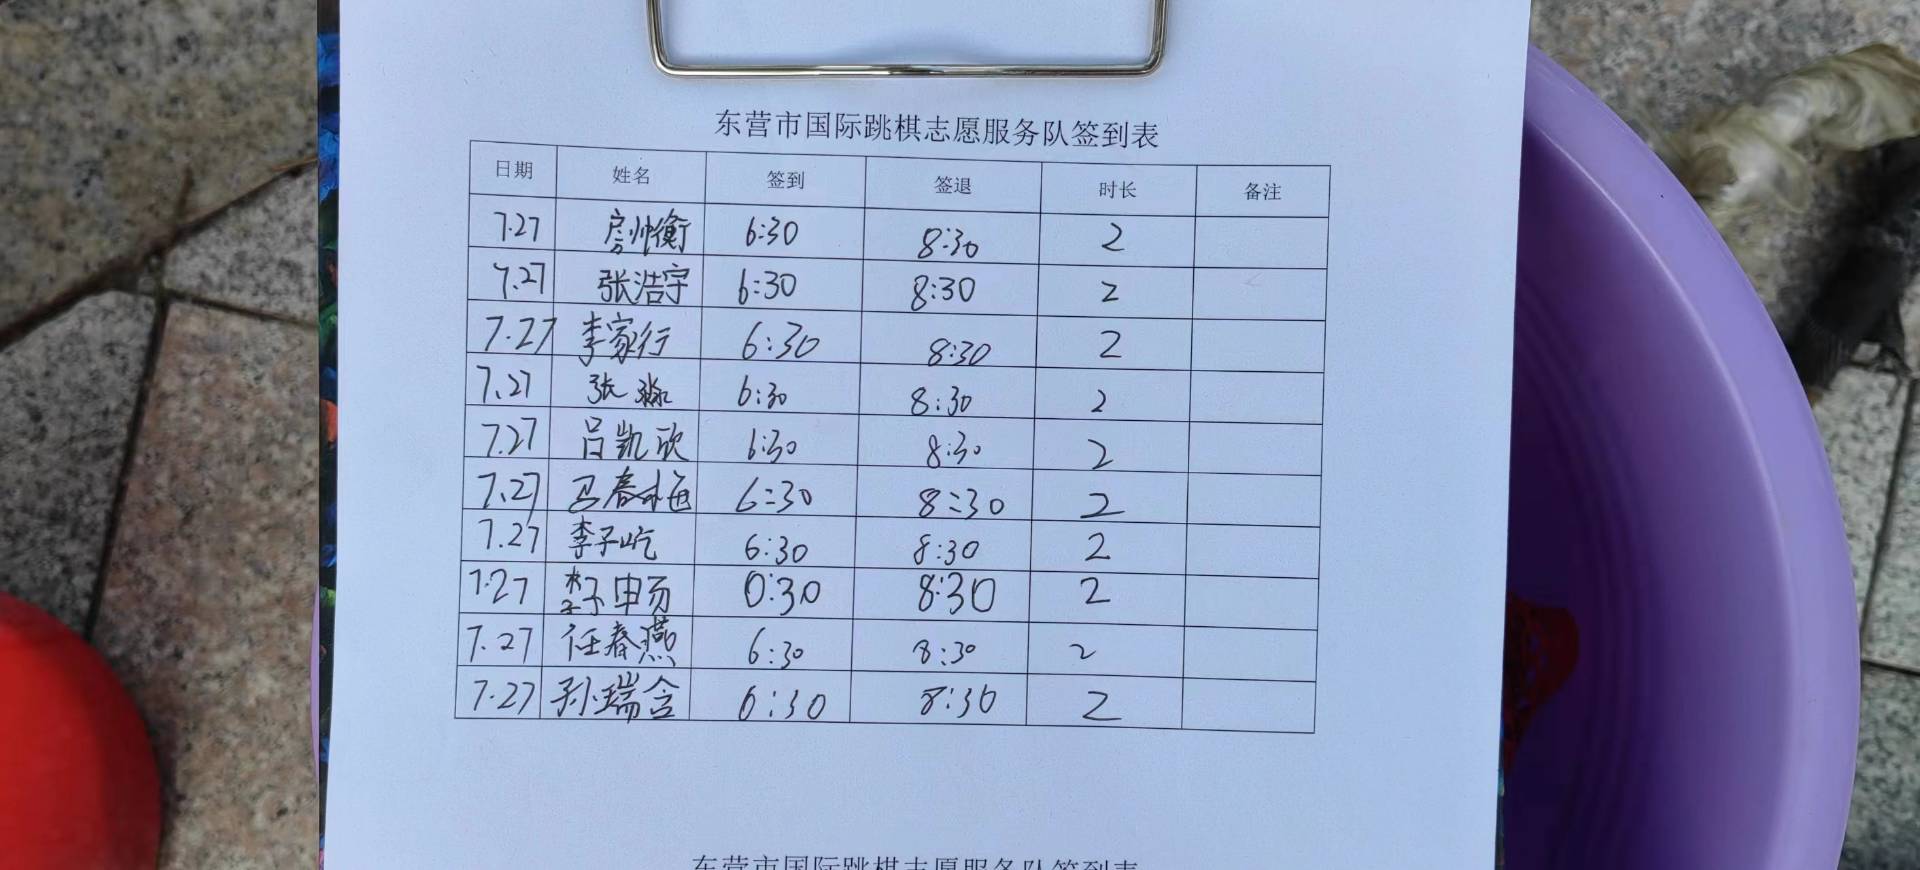 东营市国际跳棋志愿服务队签到表
日期 姓名 签到 签退 时长 备注
7.27 房帅衡 6:30 8:30 2
7.27 张浩宇 6:30 8:30 2
7.27 李家行 6:30 8:30 2
7.27 张 6:30 8:30 2
7.27 吕凯欣 6:30 8:30 2
7.27 马春梅 6:30 8:30 2
7.27 李子屹 6:30 8:30 2
7.27 李 0:30 8:30 2
7.27 任春燕 6:30 8:30 2
7.27 孙瑞含 6:30 8:30 2
东营市国际跳棋志愿服务队签到表